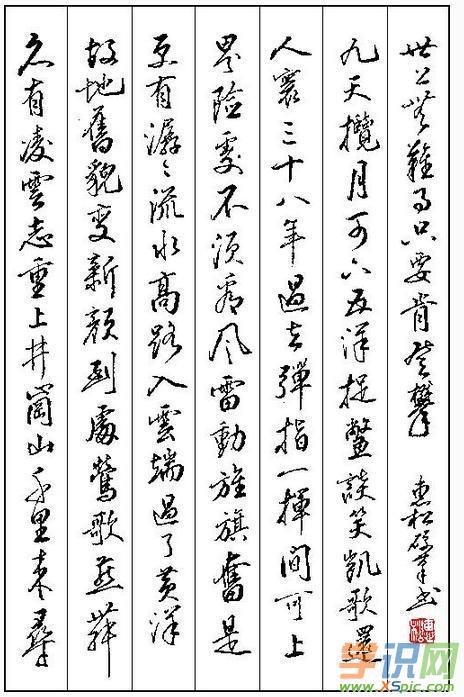 久有凌雲志重上井崗山千里来尋
故地舊貌變新顔到處鶯歌燕舞
更有潺々流水高路入雲端過了黄洋
界險處不須看風雷動旌旗奮是
人寰三十八年過去彈指一揮間可上
九天攬月可下五洋捉鱉談笑凱歌還
世上无難事只要肯登攀
惠松书
学识网
www.XSpic.com